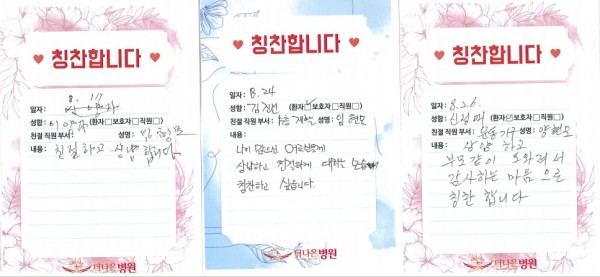 칭찬합니다
일자 : 8. 17
성함 : (환자□보호자□직원□)
친절 직원 부서: 성명: 임현모
내용 : 친절하고 상냥합니다
더나은병원
칭찬합니다
일자 : 8.24
성함 : 김진선 (환자□보호자□직원□)
친절 직원 부서: 성명: 임현모
내용 : 나이 드신 어르신들께
상냥하고 친절하게 대하는 모습
칭찬하고 싶습니다.
더나은병원
칭찬합니다
일자 : 8.26.
성함 : (환자□보호자□직원□)
친절 직원 부서: 성명:
내용 : 상냥하고
부모같이 도와줘서
감사하는 마음으로
칭찬 합니다
더나은병원